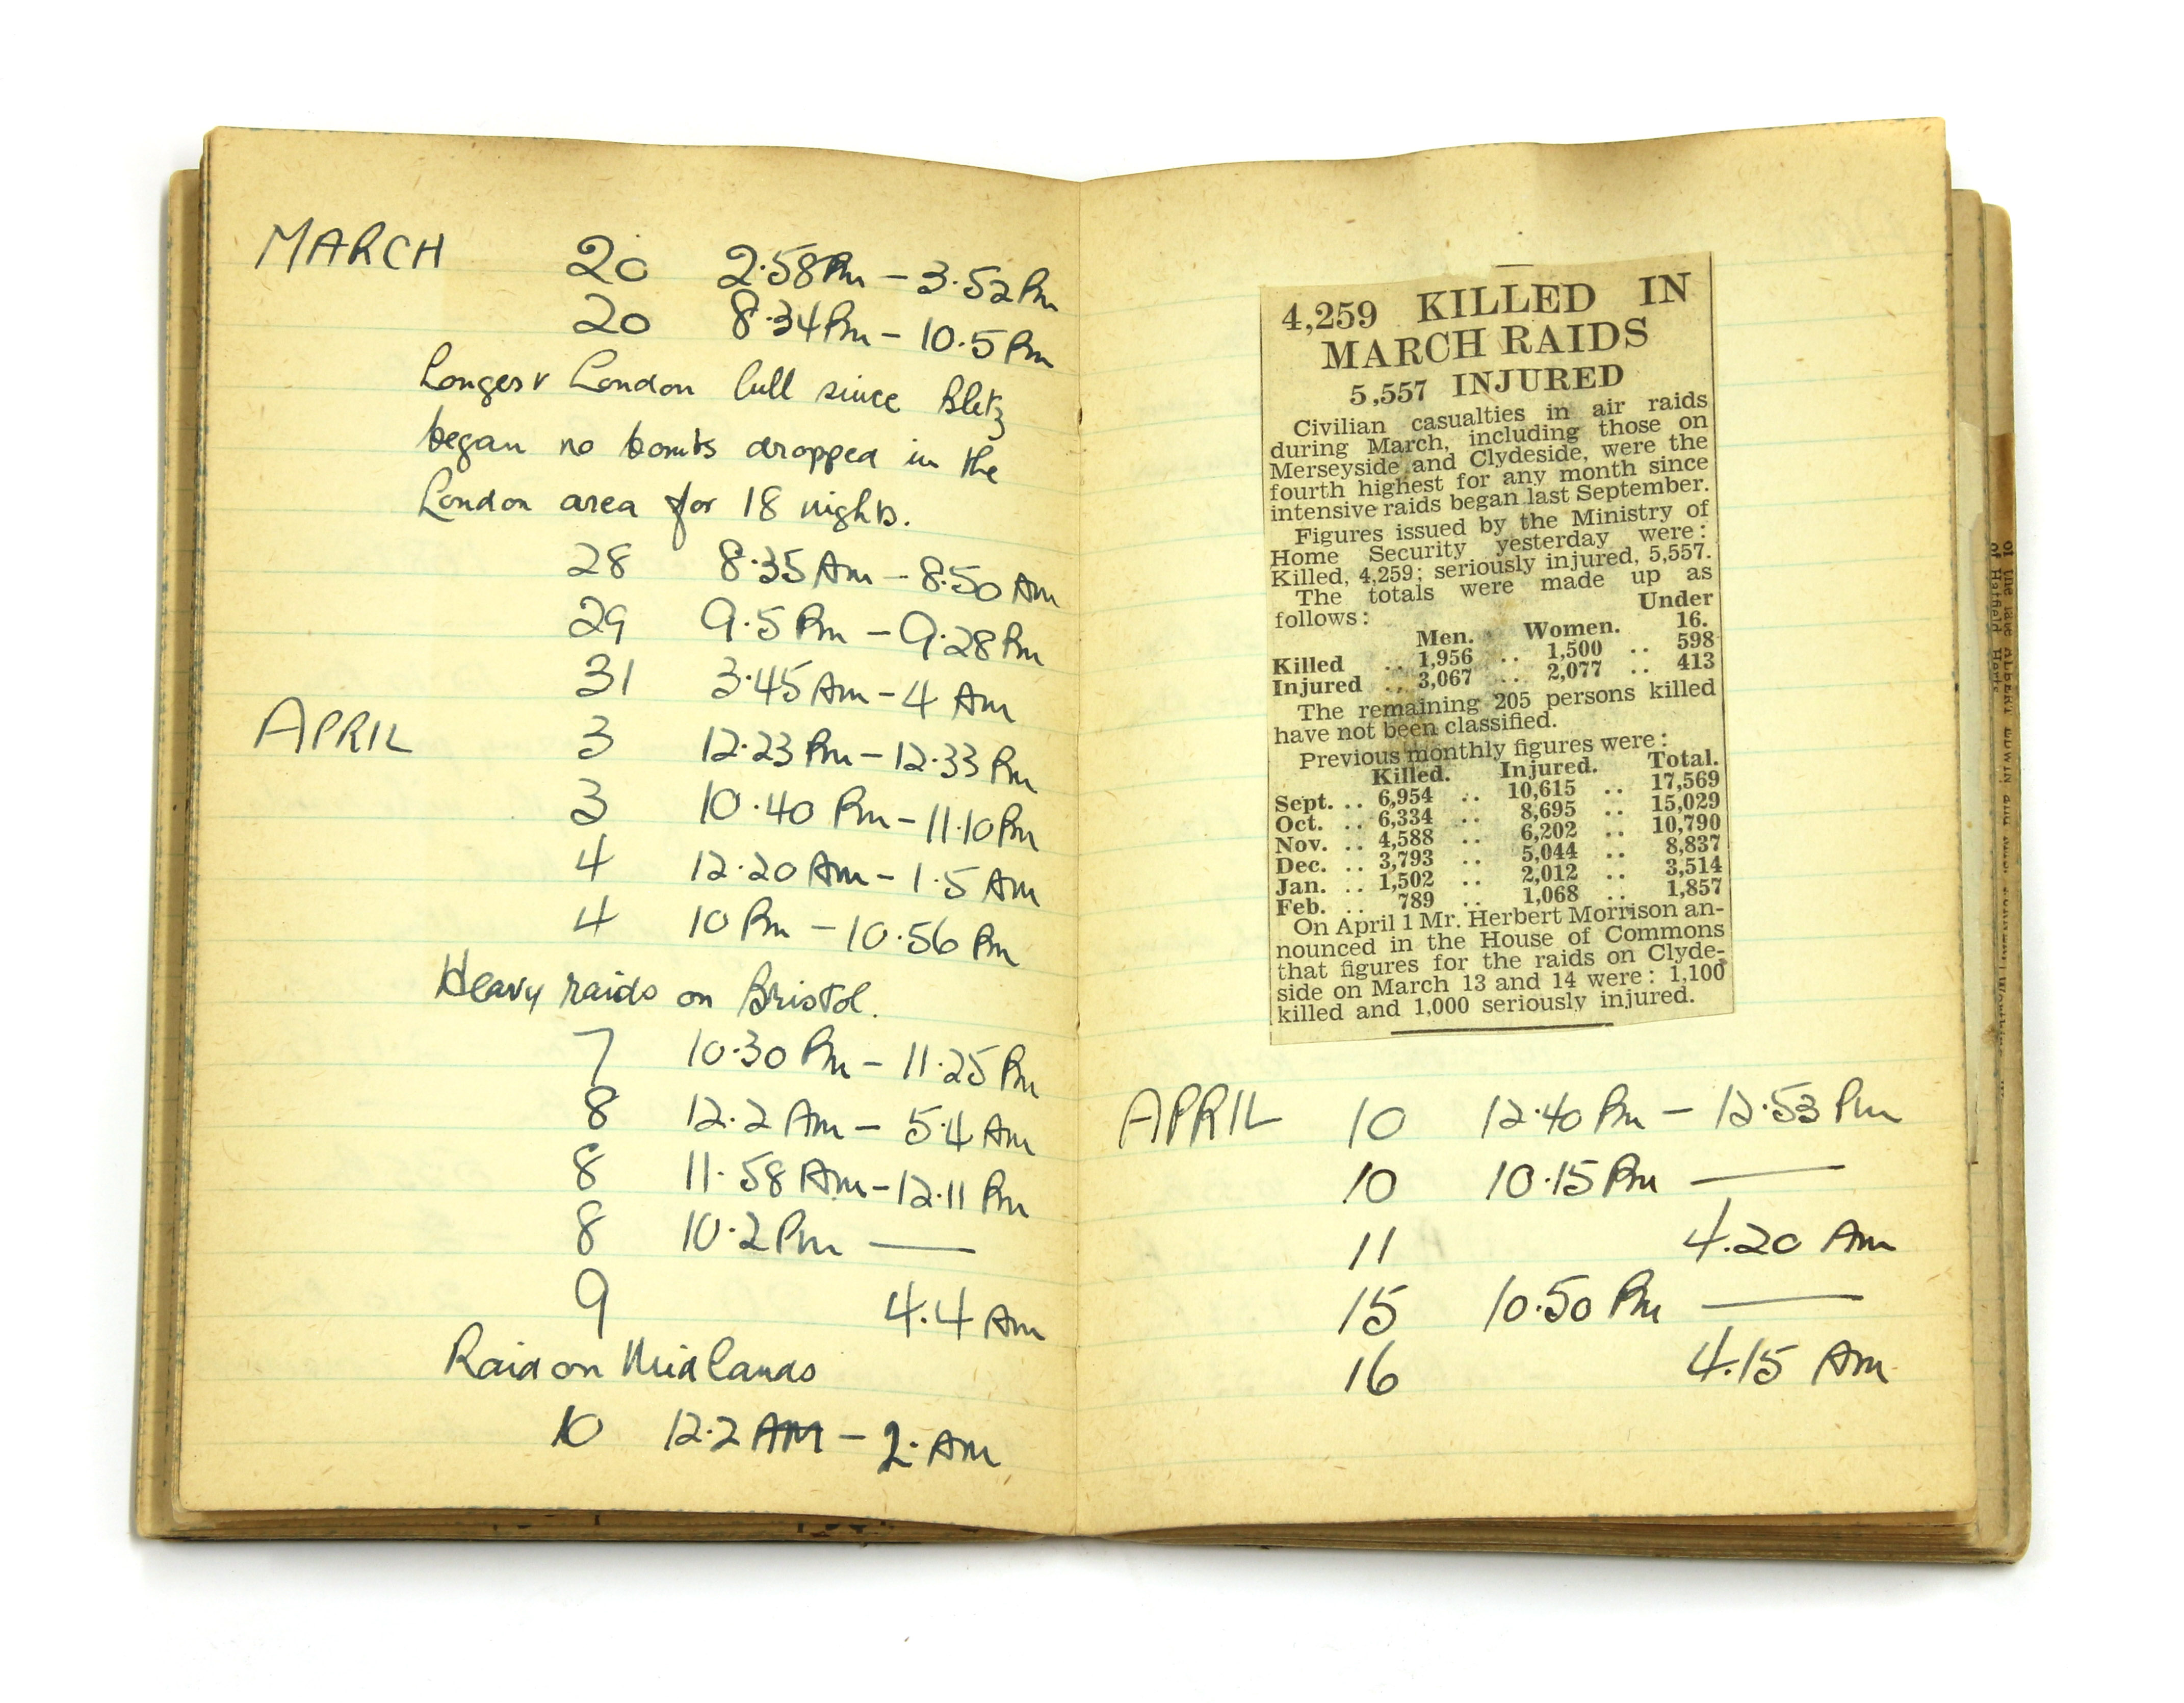 MARCH 20 2.58 Pm – 3.52 Pm
20 8.34 Pm – 10.5 Pm
Longest London lull since Blitz
began no bombs dropped in the
London area for 18 nights.
28 8.35 Am – 8.50 Am
29 9.5 Pm – 9.28 Pm
31 3.45 Am – 4 Am
APRIL 3 12.23 Pm – 12.33 Pm
3 10.40 Pm – 11.10 Pm
4 12.20 Am – 1.5 Am
4 10 Pm – 10.56 Pm
Heavy raids on Bristol.
7 10.30 Pm – 11.25 Pm
8 12.2 Am – 5.4 Am
8 11.58 Am – 12.11 Pm
8 10.2 Pm —
9 4.4 Am
Raid on Midlands
10 12.2 AM – 2. Am
4,259 KILLED IN
MARCH RAIDS
5,557 INJURED
Civilian casualties in air raids
during March, including those on
Merseyside and Clydeside, were the
fourth highest for any month since
intensive raids began last September.
Figures issued by the Ministry of
Home Security yesterday were:
Killed, 4,259; seriously injured, 5,557.
The totals were made up as
follows: Under
Men. Women. 16.
Killed .. 1,956 .. 1,500 .. 598
Injured .. 3,067 .. 2,077 .. 413
The remaining 205 persons killed
have not been classified.
Previous monthly figures were:
Killed. Injured. Total.
Sept. .. 6,954 .. 10,615 .. 17,569
Oct. .. 6,334 .. 8,695 .. 15,029
Nov. .. 4,588 .. 6,202 .. 10,790
Dec. .. 3,793 .. 5,044 .. 8,837
Jan. .. 1,502 .. 2,012 .. 3,514
Feb. .. 789 .. 1,068 .. 1,857
On April 1 Mr. Herbert Morrison an-
nounced in the House of Commons
that figures for the raids on Clyde-
side on March 13 and 14 were: 1,100
killed and 1,000 seriously injured.
APRIL 10 12.40 Pm – 12.53 Pm
10 10.15 Pm —
11 4.20 Am
15 10.50 Pm —
16 4.15 Am
of the late ALBERT EDWIN and
of Hatfield Herts